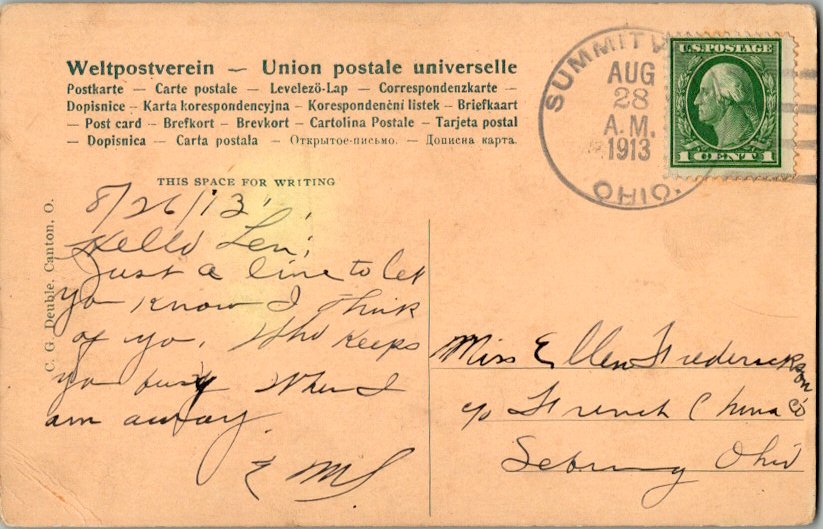 Weltpostverein — Union postale universelle
Postkarte — Carte postale — Levelező-Lap — Correspondenzkarte —
Dopisnice — Karta korespondencyjna — Korespondenční listek — Briefkaart
— Post card — Brefkort — Brevkort — Cartolina Postale — Tarjeta postal
— Dopisnica — Carta postala — Открытое-письмо. — Дописна карта.
SUMMITV
AUG
28
A.M.
1913
OHIO.
U.S. POSTAGE
1 CENT 1
THIS SPACE FOR WRITING
C. G. Deuble, Canton, O.
8/26/13
Hello Len;
Just a line to let
yo know I think
of yo. Who keeps
you busy when I
am away.
E M S
Miss Ellen Frederickson
c/o French China Co
Sebring Ohio